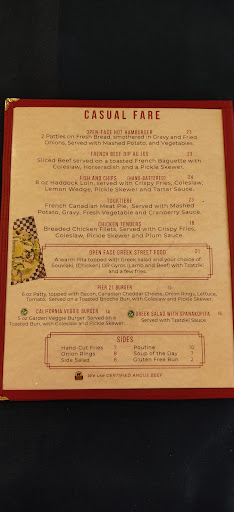 CASUAL FARE
OPEN-FACE HOT HAMBURGER 23
2 Patties on Fresh Bread, smothered in Gravy and Fried
Onions, Served with Mashed Potato, and Vegetables.
FRENCH BEEF DIP AU JUS 23
Sliced Beef served on a toasted French Baguette with
Coleslaw, Horseradish and a Pickle Skewer.
FISH AND CHIPS (HAND-BATTERED) 24
8 oz Haddock Loin, served with Crispy Fries, Coleslaw,
Lemon Wedge, Pickle Skewer and Tartar Sauce.
TOURTIERE 23
French Canadian Meat Pie, Served with Mashed
Potato, Gravy, Fresh Vegetable and Cranberry Sauce.
CHICKEN TENDERS 19
Breaded Chicken Filets, Served with Crispy Fries,
Coleslaw, Pickle Skewer and Plum Sauce.
OPEN FACE GREEK STREET FOOD 21
A warm Pita topped with Greek salad and your choice of
Souvlaki, (Chicken) OR Gyros (Lamb and Beef) with Tzatziki
and a few fries.
PIER 21 BURGER
6 oz Patty, topped with Bacon, Canadian Cheddar Cheese, Onion Rings, Lettuce,
Tomato. Served on a Toasted Brioche Bun, with Coleslaw and Pickle Skewer.
CALIFORNIA VEGGIE BURGER
5 oz Garden Veggie Burger. Served on a
Toasted Bun, with Coleslaw and Pickle Skewer.
GREEK SALAD WITH SPANAKOPITA
Served with Tzatziki Sauce
SIDES
Hand-Cut Fries 7
Onion Rings 8
Side Salad 8
Poutine 10
Soup of the Day 7
Gluten Free Bun 2
We use CERTIFIED ANGUS BEEF